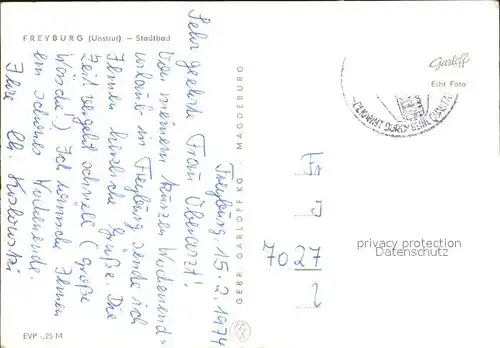 FREYBURG (Unstrut) — Stadtbad
Freyburg, 15.2.1974
Sehr geehrte Frau Oberarzt!
Von meinem kurzen Wochenend=
urlaub in Freyburg sende ich
Ihnen herzliche Grüße. Die
Zeit vergeht schnell (große
Wäsche!) Ich wünsche Ihnen
ein schönes Wochenende.
Ihre
EVP -,25 M
GEBR. GARLOFF KG · MAGDEBURG
Garloff
Echt Foto
BEKANNT DURCH SEINE QUALITÄT
7027
privacy protection
Datenschutz